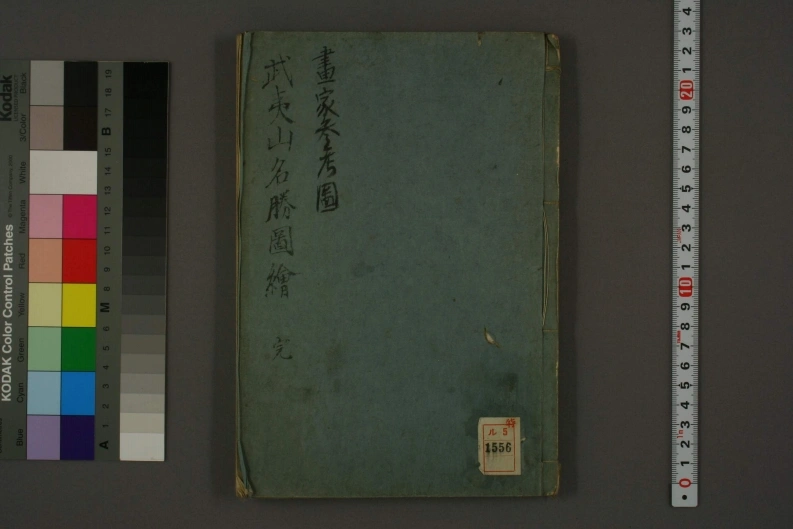 畫家參考圖
武夷山名勝圖繪 完
特
ル5
1556
Kodak
KODAK Color Control Patches
Blue
Cyan
Green
Yellow
Red
Magenta
White
3/Color
Black
A 1 2 3 4 5 6 M 8 9 10 11 12 13 14 15 B 17 18 19
0 1 2 3 4 5 6 7 8 9 10 1 2 3 4 5 6 7 8 9 20 1 2 3 4